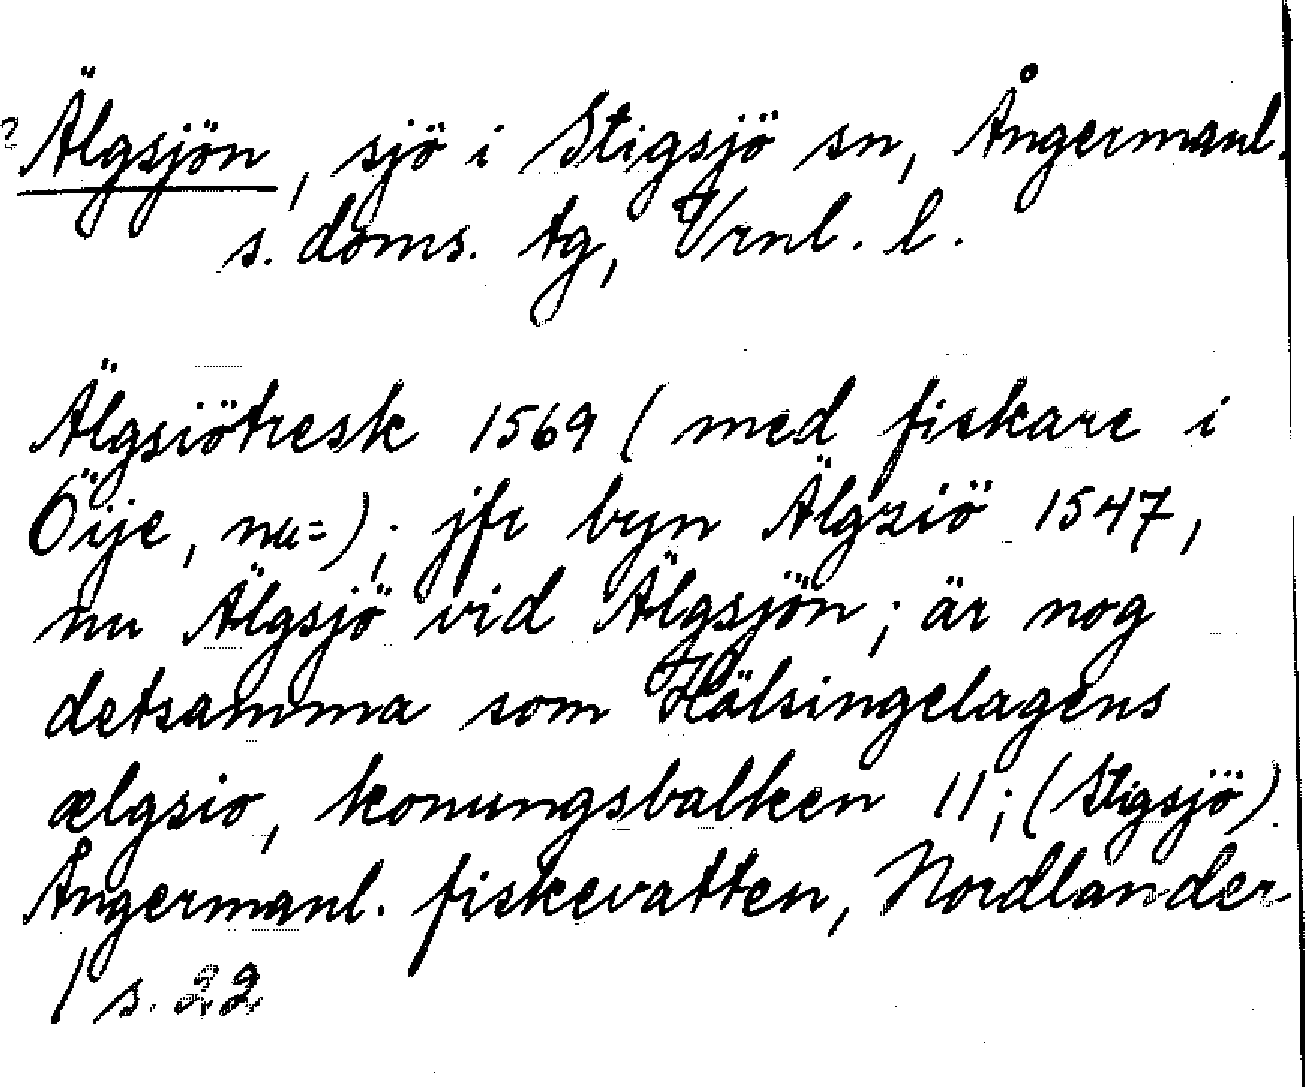 ? Älgsjön, sjö i Stigsjö sn, Ångermanl.
s. doms. tg, Vrnl. l.
Älgsiöträsk 1569 (med fiskare i
Öije, nu=); jfr byn Älgziö 1547,
nu Älgsjö vid Älgsjön; är nog
detsamma som Hälsingelagens
ælgsio, konungsbalken 11; (Stigsjö).
Ångermanl. fiskevatten, Nordlander
/ s. 22